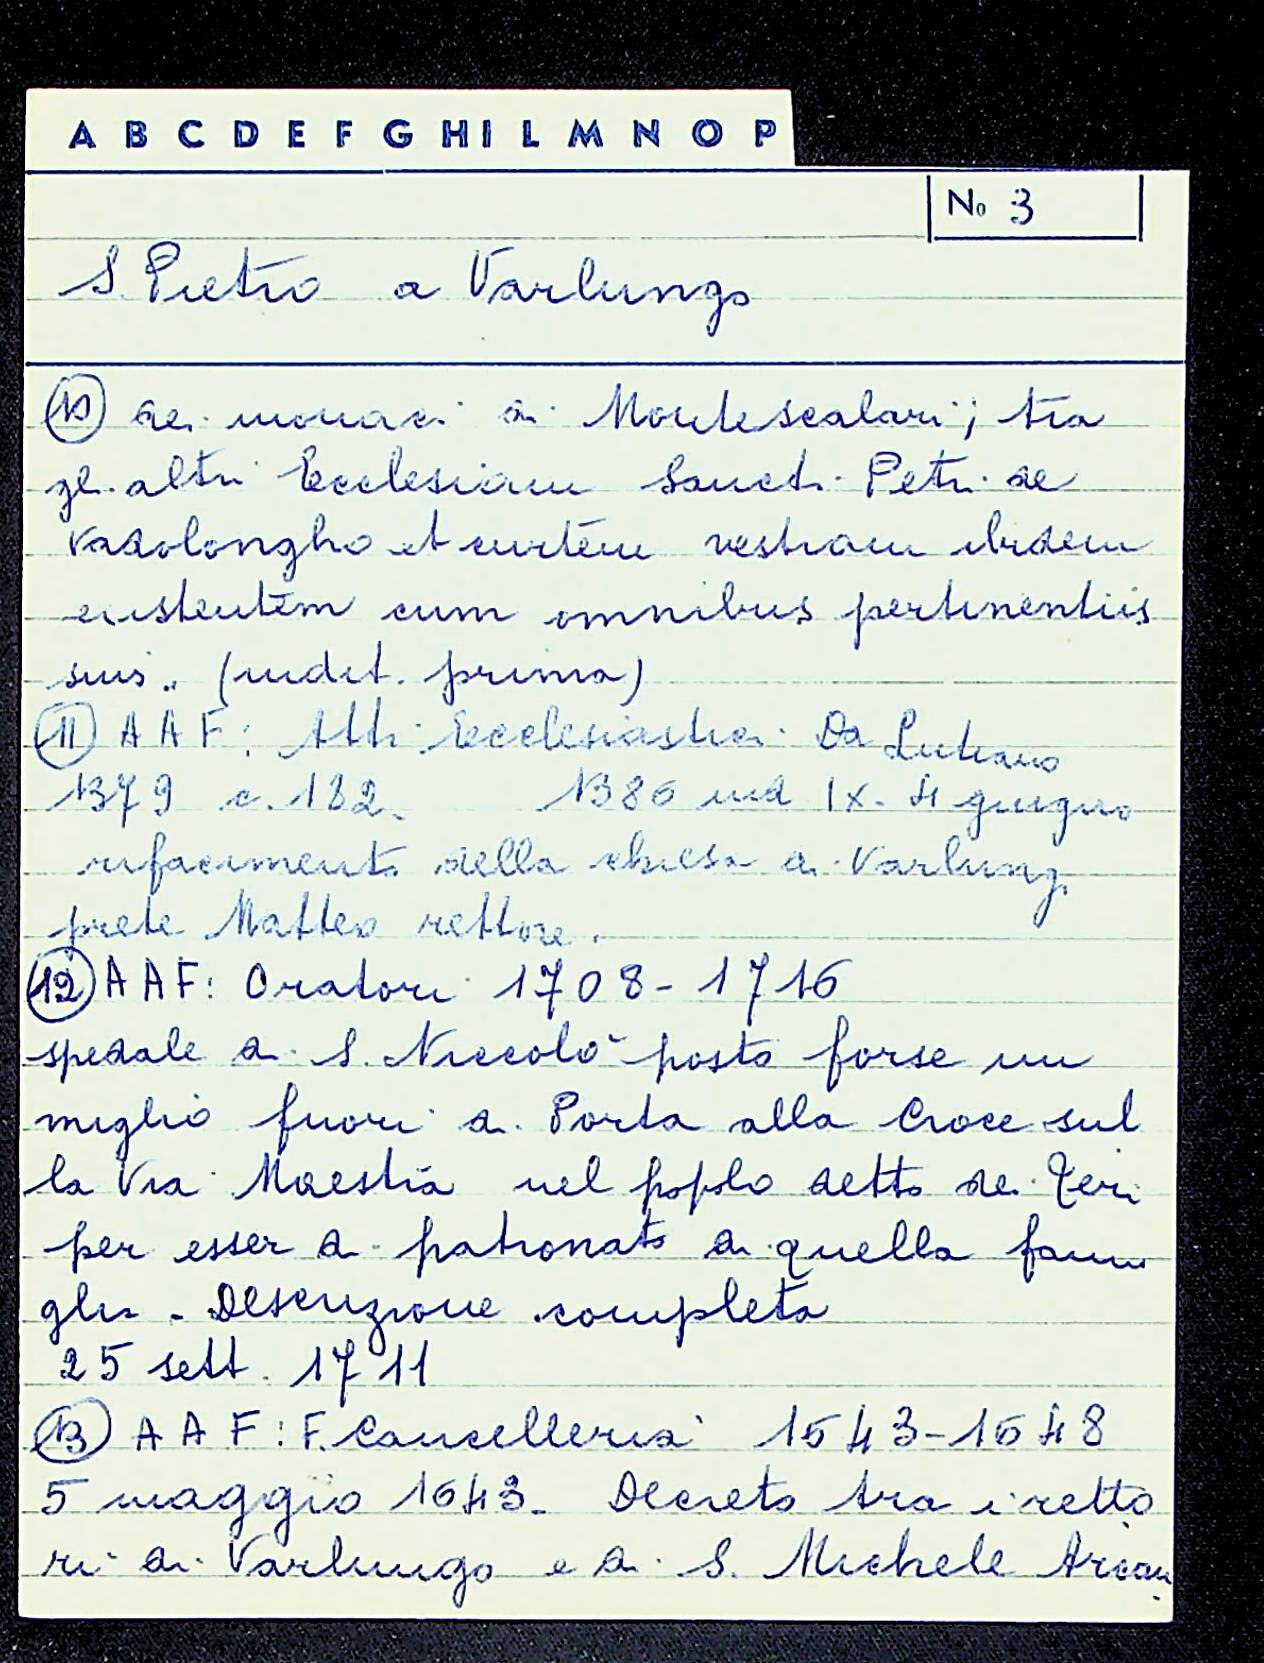 A B C D E F G H I L M N O P
No 3
S. Pietro a Varlungo
10 dei monaci di Montescalari; tra
gli altri Ecclesiam Sancti Petri de
Vadolongho et curtem vestram ibidem
existentem cum omnibus pertinentiis
suis.. (indit. prima)
11 AAF: Atti Ecclesiastici Da Lutiano
1379 c. 182. 1386 ind IX. 4 giugno
rifacimento della chiesa di Varlungo
prete Matteo rettore.
12 AAF: Oratori 1708-1716
spedale di S. Niccolò posto forse un
miglio fuori di Porta alla Croce sul
la Via Maestra nel popolo detto dei Teri
per esser di patronato di quella fami
glia. Descrizione completa
25 sett. 1711
13 AAF: F. Cancelleria 1643-1648
5 maggio 1643. Decreto tra i retto
ri di Varlungo e di S. Michele Arcan